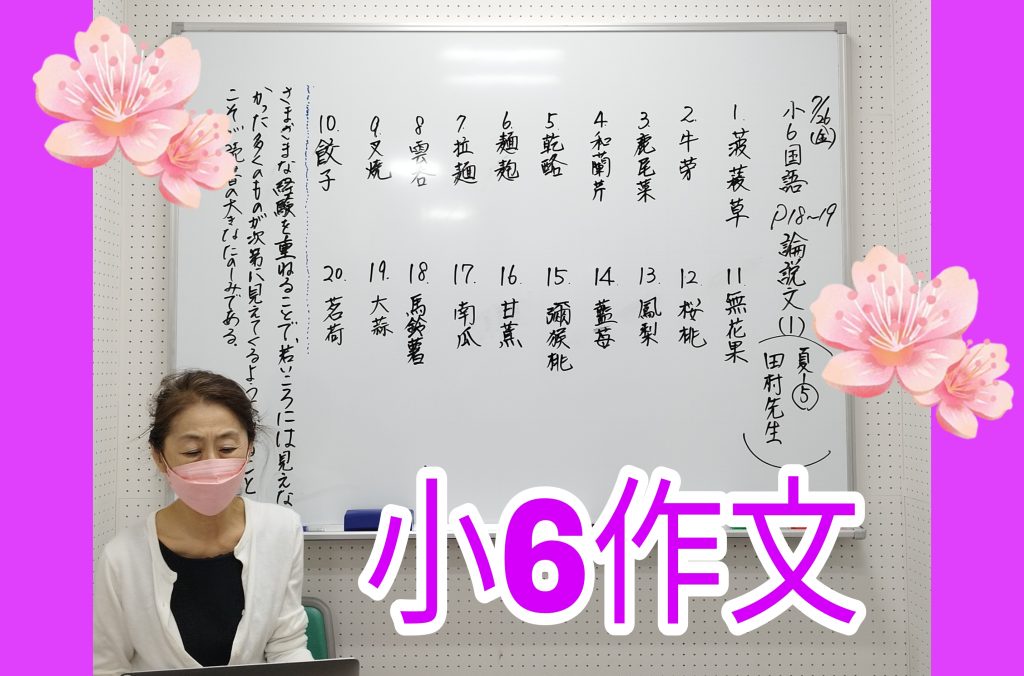 7/26(金)
小6国語 P18~19 論説文(1)
夏-⑤
田村先生
1. 菠薐草
2. 牛蒡
3. 鹿尾菜
4. 和蘭芹
5. 乾酪
6. 麺麭
7. 拉麺
8 雲呑
9. 叉焼
10. 餃子
11. 無花果
12. 桜桃
13. 鳳梨
14. 藍苺
15. 彌猴桃
16. 甘蕉
17. 南瓜
18. 馬鈴薯
19. 大蒜
20. 茗荷
さまざまな経験を重ねることで、若いころには見えな
かった多くのものが次第に見えてくるよう こと
こそが の大きなたのしみである。
小6作文